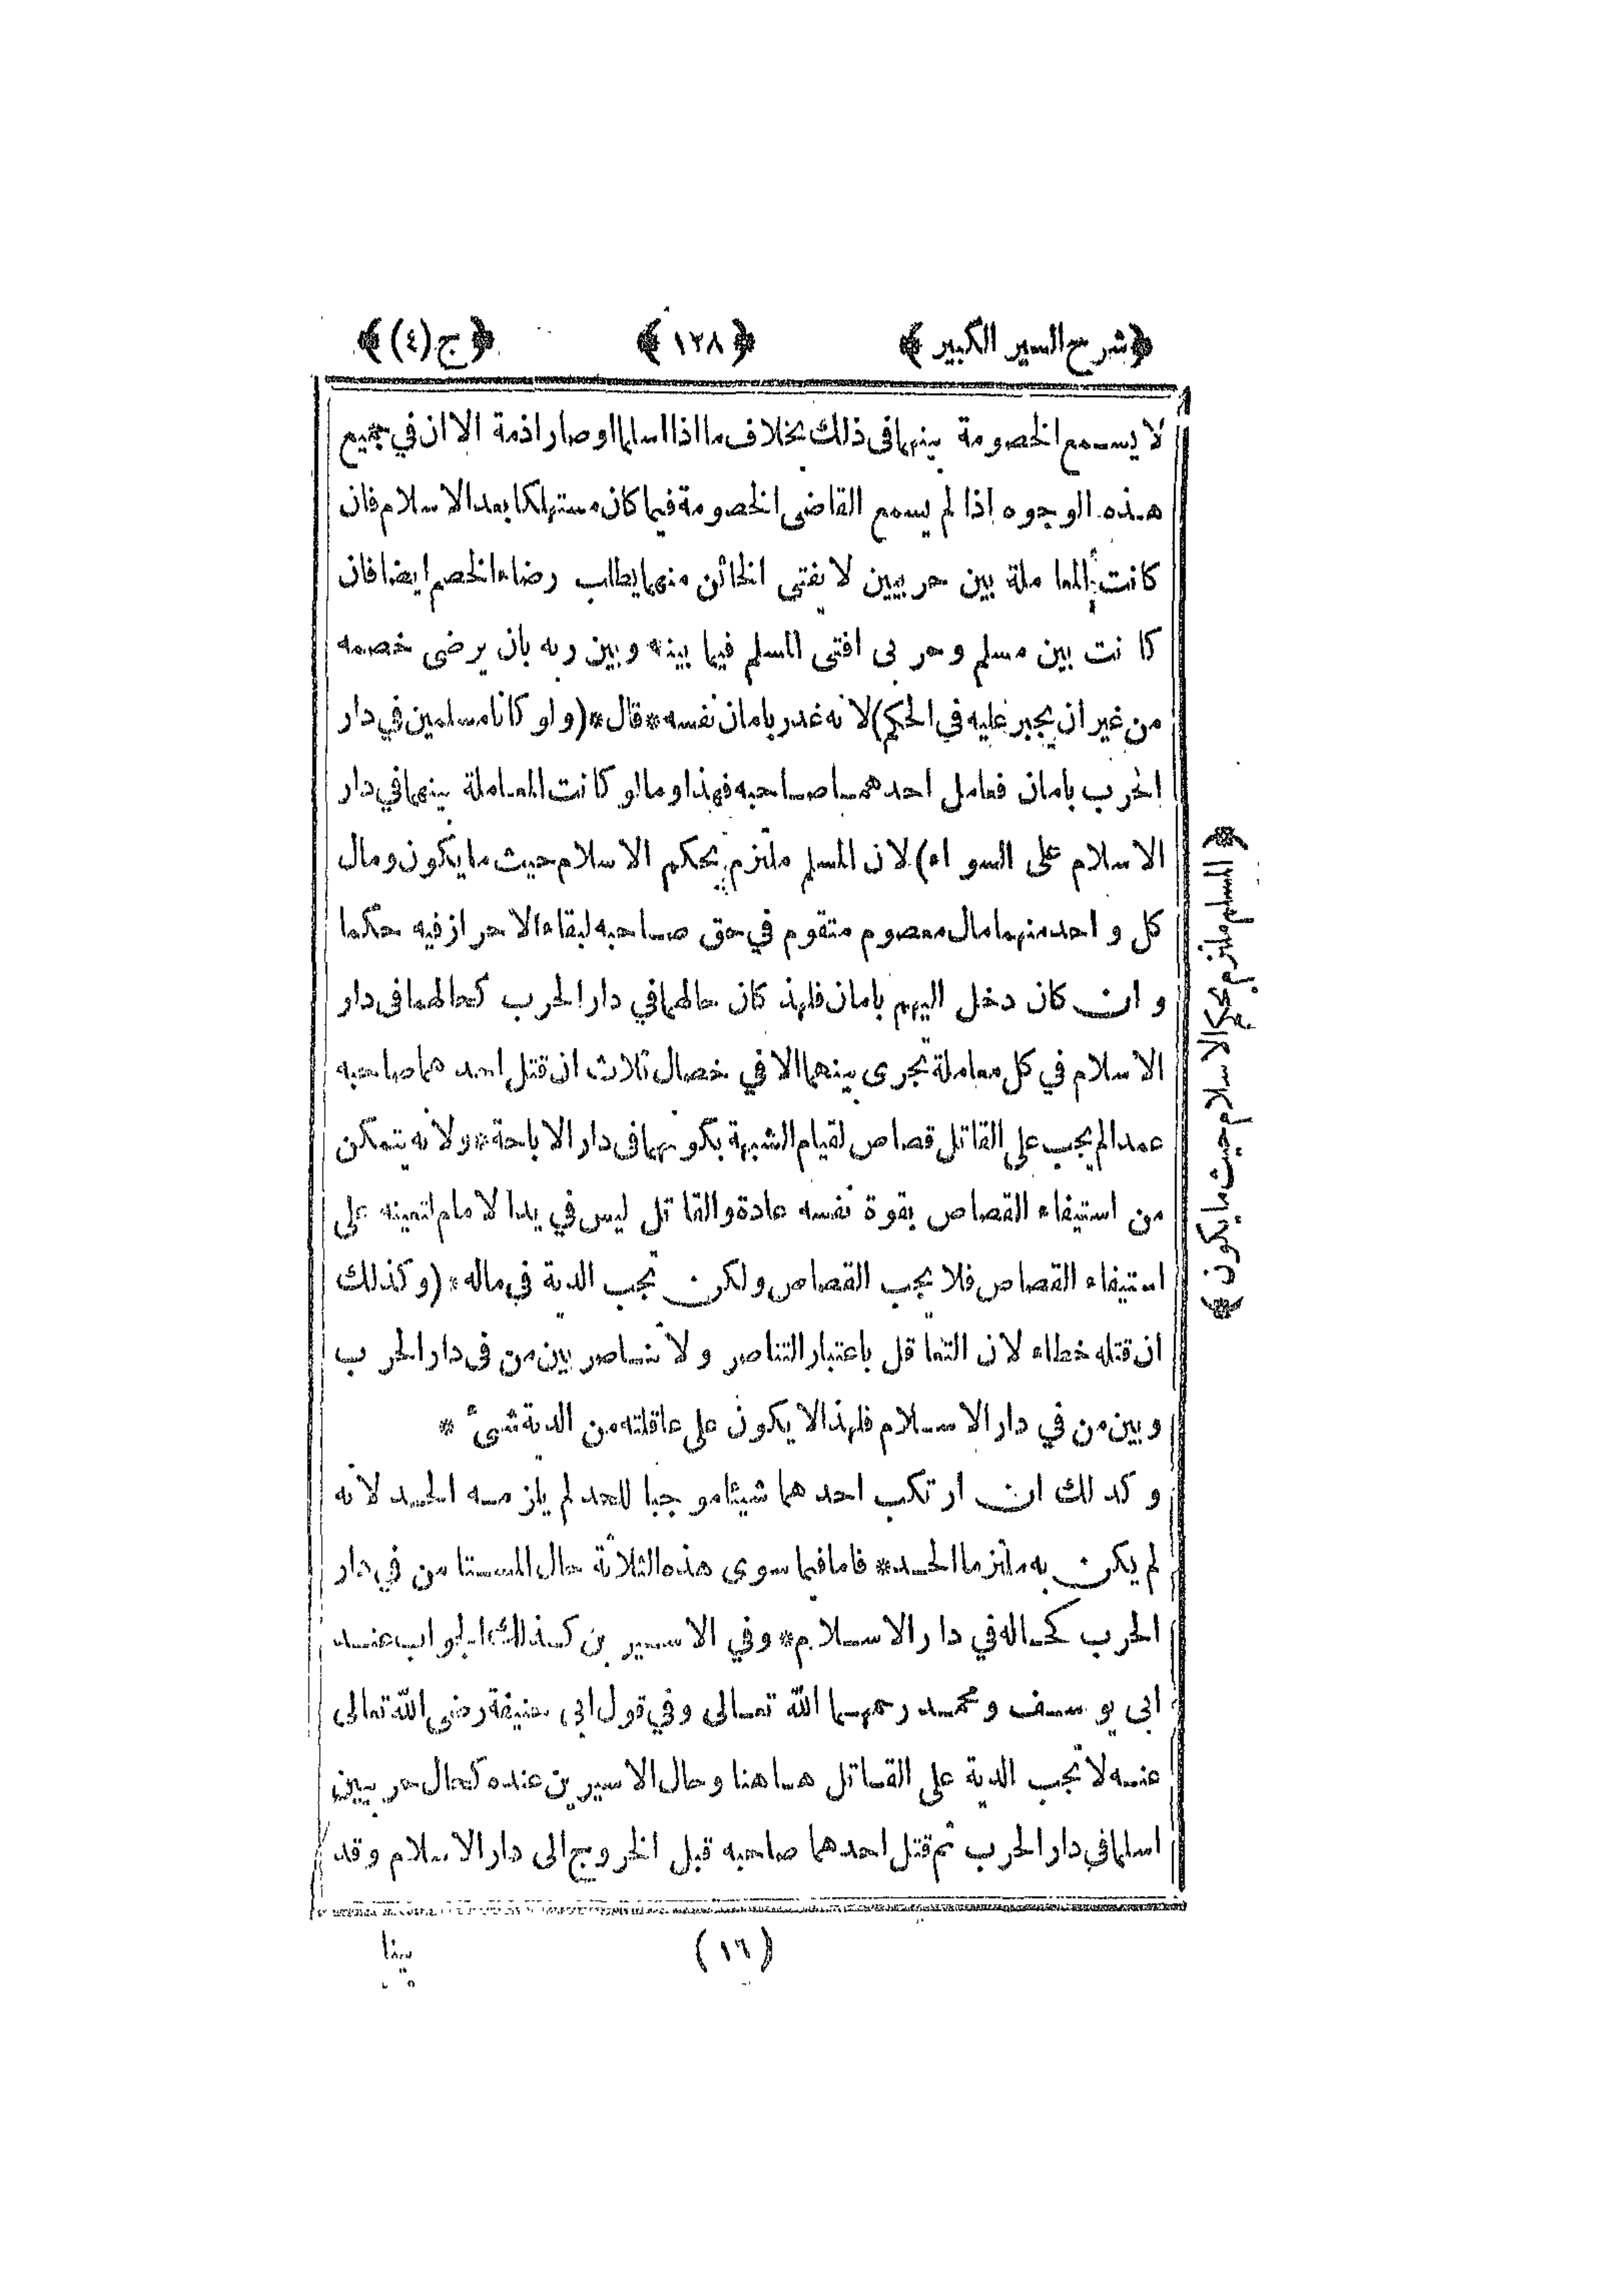 ﴿شرح السير الكبير﴾ ﴿١٢٨﴾ ﴿ج(٤)﴾
لا يسمع الخصومة بينهما فى ذلك بخلاف ما اذا اسلما او صارا ذمة الا ان في جميع
هذه الوجوه اذا لم يسمع القاضى الخصومة فيما كان مستهلكا بعد الاسلام فان
كانت المعاملة بين حربيين لا يفتى الخائن منهما يطلب رضاء الخصم ايضا فان
كانت بين مسلم وحربى افتى المسلم فيما بينه وبين ربه بان يرضى خصمه
من غير ان يجبر عليه في الحكم) لانه غدر بامان نفسه * قال * (ولو كانا مسلمين في دار
الحرب بامان فعامل احدهما صاحبه فهذا وما لو كانت المعاملة بينهما في دار
الاسلام على السواء) لان المسلم ملتزم بحكم الاسلام حيث ما يكون ومال
كل واحد منهما مال معصوم متقوم في حق صاحبه لبقاء الاحراز فيه حكما
وان كان دخل اليهم بامان فلهذ كان حالهما في دار الحرب كحالهما فى دار
الاسلام في كل معاملة تجرى بينهما الا في خصال ثلاث ان قتل احد هما صاحبه
عمدا لم يجب على القاتل قصاص لقيام الشبهة بكونهما فى دار الاباحة * ولانه يتمكن
من استيفاء القصاص بقوة نفسه عادة والقاتل ليس في يد الامام لتعينه على
استيفاء القصاص فلا يجب القصاص ولكن تجب الدية في ماله * (وكذلك
ان قتله خطاء لان التعاقل باعتبار التناصر ولا تناصر بين من فى دار الحرب
وبين من في دار الاسلام فلهذا لا يكون على عاقلته من الدية شئ *
وكد لك ان ارتكب احدهما شيئا موجبا للحد لم يلزمه الحد لانه
لم يكن به ملتزما الحد * فاما فيما سوى هذه الثلاثة حال المستامن في دار
الحرب كحاله في دار الاسلام * وفي الاسيرين كذلك الجواب عند
ابى يوسف ومحمد رحمهما الله تعالى وفي قول ابى حنيفة رضى الله تعالى
عنه لا تجب الدية على القاتل هاهنا وحال الاسيرين عنده كحال حربيين
اسلما في دار الحرب ثم قتل احدهما صاحبه قبل الخروج الى دار الاسلام وقد
﴿المسلم ملتزم بحكم الاسلام حيث ما يكون﴾
(١٦)
بينا